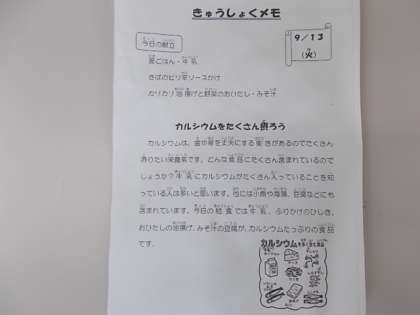 きゅうしょくメモ
今日の献立
9/13
(火)
麦ごはん・牛乳
さばのピリ辛ソースかけ
カリカリ油揚げと野菜のおひたし・みそ汁
カルシウムをたくさん摂ろう
カルシウムは、歯や骨を丈夫にする働きがあるのでたくさん
摂りたい栄養素です。どんな食品にたくさん含まれているので
しょうか？牛乳にカルシウムがたくさん入っていることを知
っている人は多いと思います。他には小魚や海藻、豆腐などにも
含まれています。今日の給食では牛乳、ふりかけのひじき、
おひたしの油揚げ、みそ汁の豆腐が、カルシウムたっぷりの食品
です。
カルシウムを多く含む食品